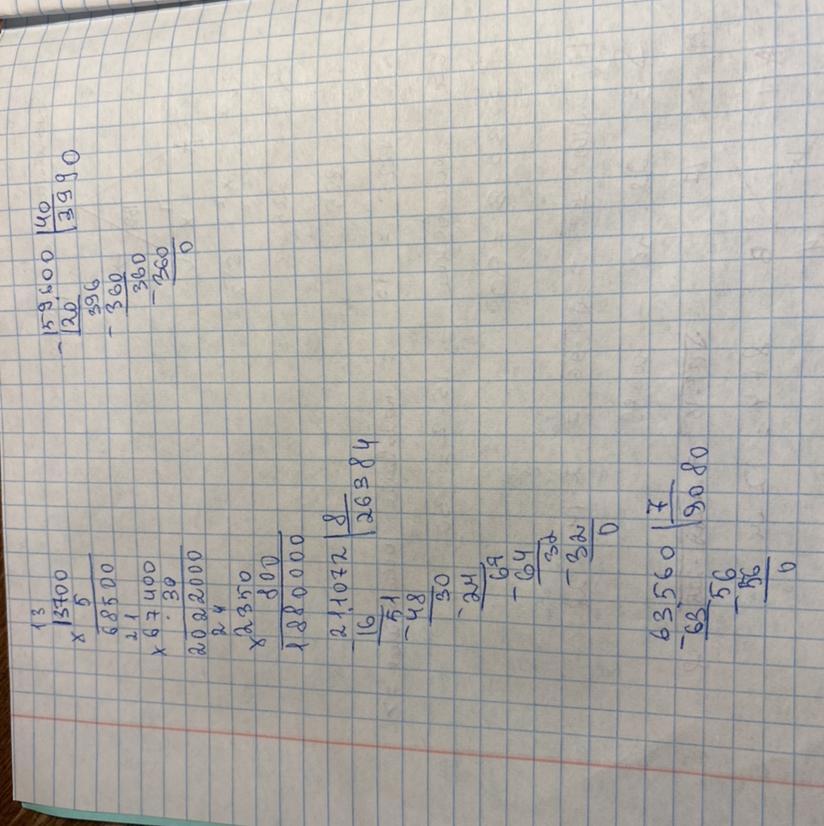 13
13700
× 5
68500
21
× 67400
· 30
2022000
24
× 2350
800
1880000
- 211072 | 8
16 | 26384
51
- 48
30
- 24
67
- 64
32
- 32
0
63560 | 7
- 63 | 9080
56
- 56
0
- 159600 | 40
120 | 3990
396
- 360
360
- 360
0